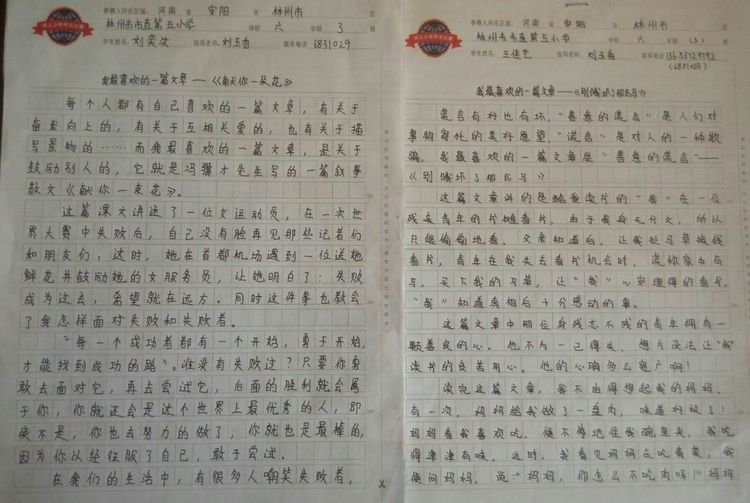 参赛人所在区域: 河南 省 安阳 市 林州市 区
林州市市直第五小学 学校 六 年级 3 班
学生姓名: 刘奕姿 指导老师: 刘玉香 联系电话 6831029
我最喜欢的一篇文章——《献你一朵花》
每个人都有自己喜欢的一篇文章,有关于
奋发向上的,有关于互相关爱的,也有关于描
写景物的……而我最喜欢的一篇文章,是关于
鼓励别人的,它就是冯骥才先生写的一篇叙事
散文《献你一束花》。
这篇课文讲述了一位女运动员,在一次世
界大赛中失败后,自己没有脸再见那些记者们
和朋友们,这时,她在首都机场遇到一位送她
鲜花并鼓励她的女服务员,让她明白了:失败
成为过去,希望就在远方。同时这件事也教会
了我怎样面对失败和失败者。
“每一个成功者都有一个开始,勇于开始,
才能找到成功的路”。谁没有失败过?只要你勇
敢去面对它,再去尝试它,后面的胜利就会属
于你,你就还会是这个世界上最优秀的人,即
使不是,你也去努力的做了,你就也是最棒的,
因为你从经征服了自己,敢于尝试。
在我们的生活中,有很多人嘲笑失败者,
参赛人所在区域: 河南 省 安阳 市 林州市 区
林州市市直第五小学 学校 六 年级 (3) 班
学生姓名: 王佳艺 指导老师: 刘玉香 联系电话
(6831029)
我最喜欢的一篇文章——《别饿坏了那匹马》
谎言有好也有坏,“善意的谎言”是人们对
事物寄托的美好愿望,“谎言”是对人的一种欺
骗,我最喜欢的一篇文章是“善意的谎言”——
《别饿坏了那匹马》
这篇文章讲的是酷爱读书的“我”在一位
残疾青年的书摊看书,由于我身无分文,所以
只能偷偷地看,父亲知道后,让我扯马草换钱
看书,青年在我失去看书机会时,谎称家中有
马,买下我的马草,让“我”心安理得的看书,
“我”知道真相后十分感动的事。
这篇文章中那位身残志不残的青年拥有一
颗善良的心。他不为一己得失,想方设法让“我”
读书的良苦用心。他的心胸多么宽广啊!
读完这篇文章,我不由得想起我的妈妈,
有一次,妈妈给我做了一盘肉,味道好极了!
妈妈看我喜欢吃,便不停地往我碗里夹,我吃
得津津有味,这时,我看见妈妈在吃青菜,我
便问妈妈,说:“妈妈,你怎么不吃肉呀!”妈妈